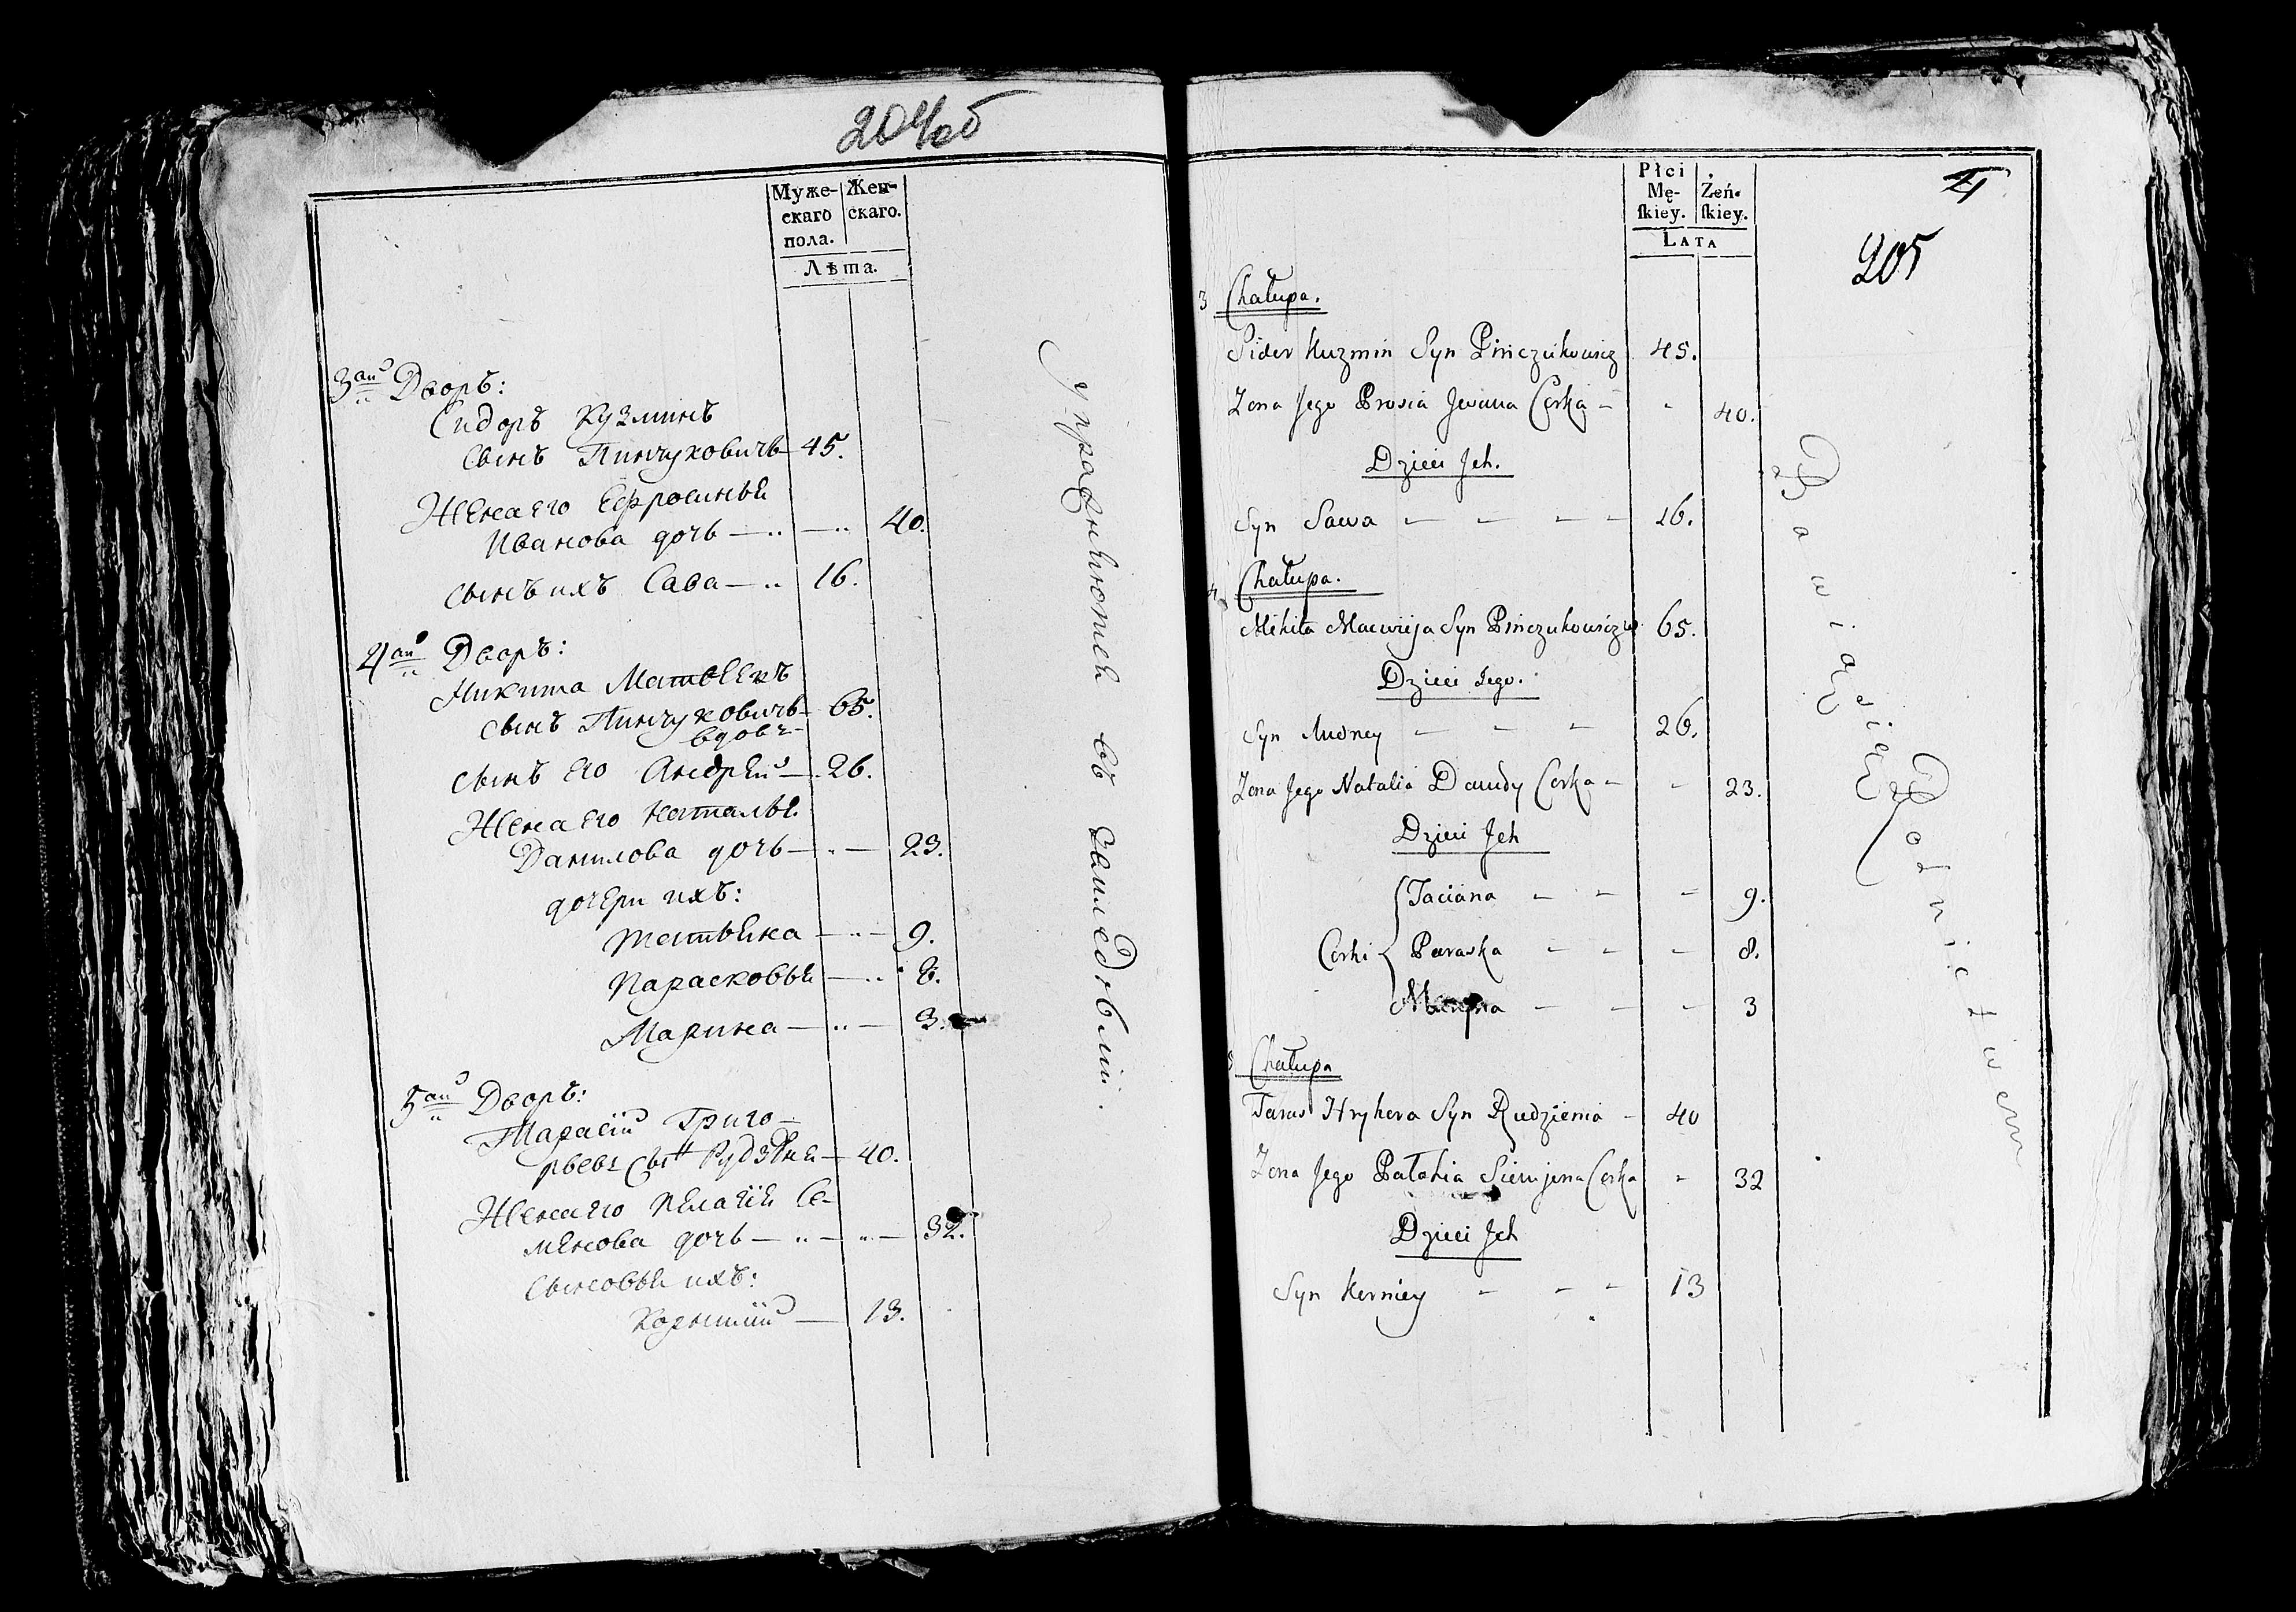 204об
Муже-
скаго
пола.
Жен-
скаго.
Лѣта.
3ай Дворъ:
Сидоръ Кузминъ
сынъ Пинчуковичь — 45.
Жена его Ефросинья
Иванова дочь — 40.
сынъ ихъ Сава — 16.
4ай Дворъ:
Никита Матвеевъ
сынъ Пинчуковичь — 65.
вдовъ
сынъ его Андрей — 26.
Жена его Наталья
Данилова дочь — 23.
дочери ихъ:
Татьяна — 9.
Парасковья — 8.
Марина — 3.
5ай Дворъ:
Тарасiй Григо-
рьевъ сынъ Рудзѣня — 40.
Жена его Пелагiя Се-
менова дочь — 32.
сыновья ихъ:
Корнилiй — 13.
упражняются въ земледѣлiи.
Płci
Mę-
ſkiey.
Żeń-
ſkiey.
LATA
4
205
3 Chałupa.
Sider Kuzmin Syn Pińczukowicz 45.
Zona Jego Prosia Jwana Corka — 40.
Dzieci Jch.
Syn Sawa — — — — 16.
4 Chałupa.
Mikita Maewieja Syn Pińczukowicz w 65.
Dzieci Jego.
Syn Andrey — — — 26.
Zona Jego Natalia Dauidy Corka — 23.
Dzieci Jch
Taciana — — — 9.
Corki Paraska — — — 8.
Maryna — — — 3
5 Chałupa
Taras Hryhera Syn Rudzienia — 40
Zona Jego Pałahia Siemjona Corka — 32
Dzieci Jch
Syn Kerniey — — — 13
Bawią się Rolnictwem